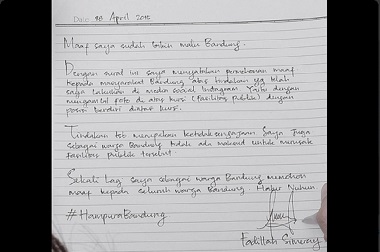 Date: 28 April 2015
Maaf saya sudah bikin malu Bandung.
Dengan surat ini saya menyatakan permohonan maaf
kepada masyarakat Bandung atas tindakan yg telah
saya lakukan di media social Instagram Yaitu dengan
mengambil foto di atas kursi (fasilitas publik) dengan
posisi berdiri diatas kursi.
Tindakan tsb merupakan ketidaksengajaan Saya Juga
sebagai warga Bandung tidak ada maksud untuk merusak
fasilitas publik tersebut.
Sekali Lagi saya sebagai warga Bandung memohon
maaf kepada seluruh warga Bandung Hatur Nuhun
#HampuraBandung
Fadillah